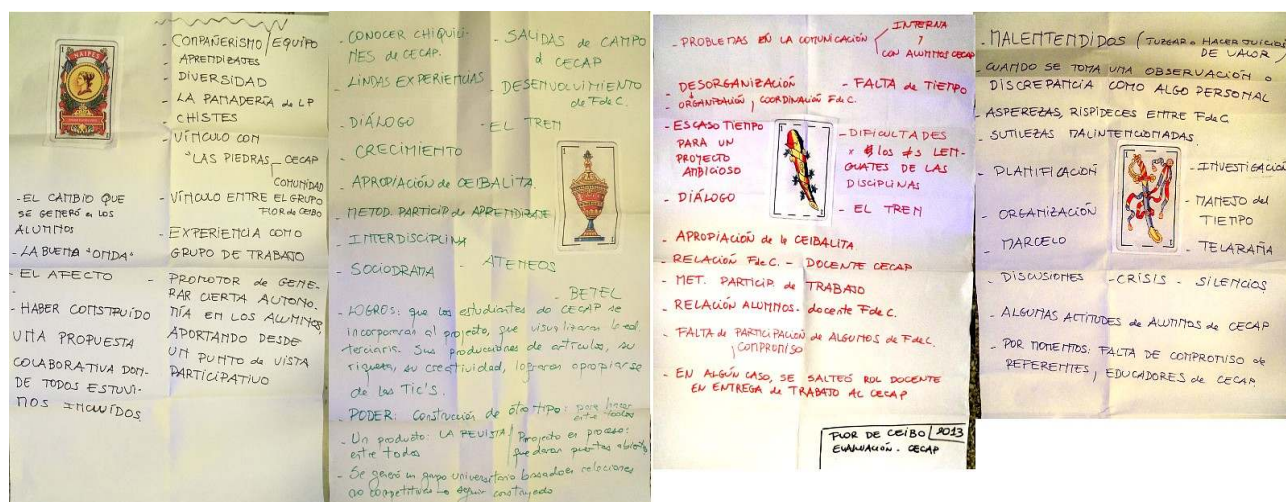 NAIPES
- COMPAÑERISMO / EQUIPO
- APRENDIZAJES
- DIVERSIDAD
- LA PANADERÍA de LP
- CHISTES
- VÍNCULO CON
"LAS PIEDRAS - CECAP
COMUNIDAD
- VÍNCULO ENTRE EL GRUPO
FLOR de CEIBO
- EXPERIENCIA COMO
GRUPO DE TRABAJO
- PROMOTOR de GENE-
RAR CIERTA AUTONO-
MÍA EN LOS ALUMNOS,
APORTANDO DESDE
UN PUNTO de VISTA
PARTICIPATIVO
- EL CAMBIO QUE
SE GENERÓ en LOS
ALUMNOS
- LA BUENA "ONDA"
- EL AFECTO
- HABER CONSTRUÍDO
UNA PROPUESTA
COLABORATIVA DON-
DE TODOS ESTUVI-
MOS INCLUÍDOS
- CONOCER CHIQUILI-
NES de CECAP.
- LINDAS EXPERIENCIAS
- DIÁLOGO
- CRECIMIENTO
- APROPIACIÓN de CEIBALITA.
- METOD. PARTICIP. de APRENDIZAJE
- INTERDISCIPLINA
- SOCIODRAMA
- SALIDAS de CAMPO
a CECAP
- DESENVOLVIMIENTO
de F de C.
- EL TREN
- ATENEOS
- BETEL
- LOGROS: que los estudiantes de CECAP se
incorporaran al proyecto, que visualizaran la ed.
terciaria. Sus producciones de artículos, su
riqueza, su creatividad, lograron apropiarse
de las Tic's.
- PODER: Construcción de otro tipo: para hacer
entre todos
- Un producto: LA REVISTA / Proyecto en proceso:
entre todos quedaron puertas abiertas
- Se generó un grupo universitario basado en relaciones
no competitivas → seguir construyendo
- PROBLEMAS EN LA COMUNICACIÓN
INTERNA
y
CON ALUMNOS CECAP
- DESORGANIZACIÓN
- ORGANIZACIÓN y COORDINACIÓN F de C.
- FALTA de TIEMPO
- ESCASO TIEMPO
PARA UN
PROYECTO
AMBICIOSO
- DIÁLOGO
- DIFICULTADES
x los ≠s LEN-
GUAJES DE LAS
DISCIPLINAS
- EL TREN
- APROPIACIÓN de la CEIBALITA
- RELACIÓN F de C. - DOCENTE CECAP
- MET. PARTICIP. de TRABAJO
- RELACIÓN ALUMNOS - docente F de C.
- FALTA de PARTICIPACIÓN de ALGUNOS de F de C.
y COMPROMISO
- EN ALGÚN CASO, SE SALTEÓ ROL DOCENTE
EN ENTREGA de TRABAJO AL CECAP
FLOR DE CEIBO / 2013
EVALUACIÓN - CECAP
- MALENTENDIDOS (JUZGAR o HACER JUICIOS
DE VALOR)
- CUANDO SE TOMA UNA OBSERVACIÓN o
DISCREPANCIA COMO ALGO PERSONAL
- ASPEREZAS, RISPIDECES ENTRE F de C
- SUTILEZAS MALINTENCIONADAS.
- PLANIFICACIÓN
- ORGANIZACIÓN
- MARCELO
- INVESTIGACIÓN
- MANEJO del
TIEMPO
- TELARAÑA
- DISCUSIONES - CRISIS - SILENCIOS
- ALGUNAS ACTITUDES de ALUMNOS de CECAP
- POR MOMENTOS: FALTA DE COMPROMISO de
REFERENTES, EDUCADORES de CECAP.